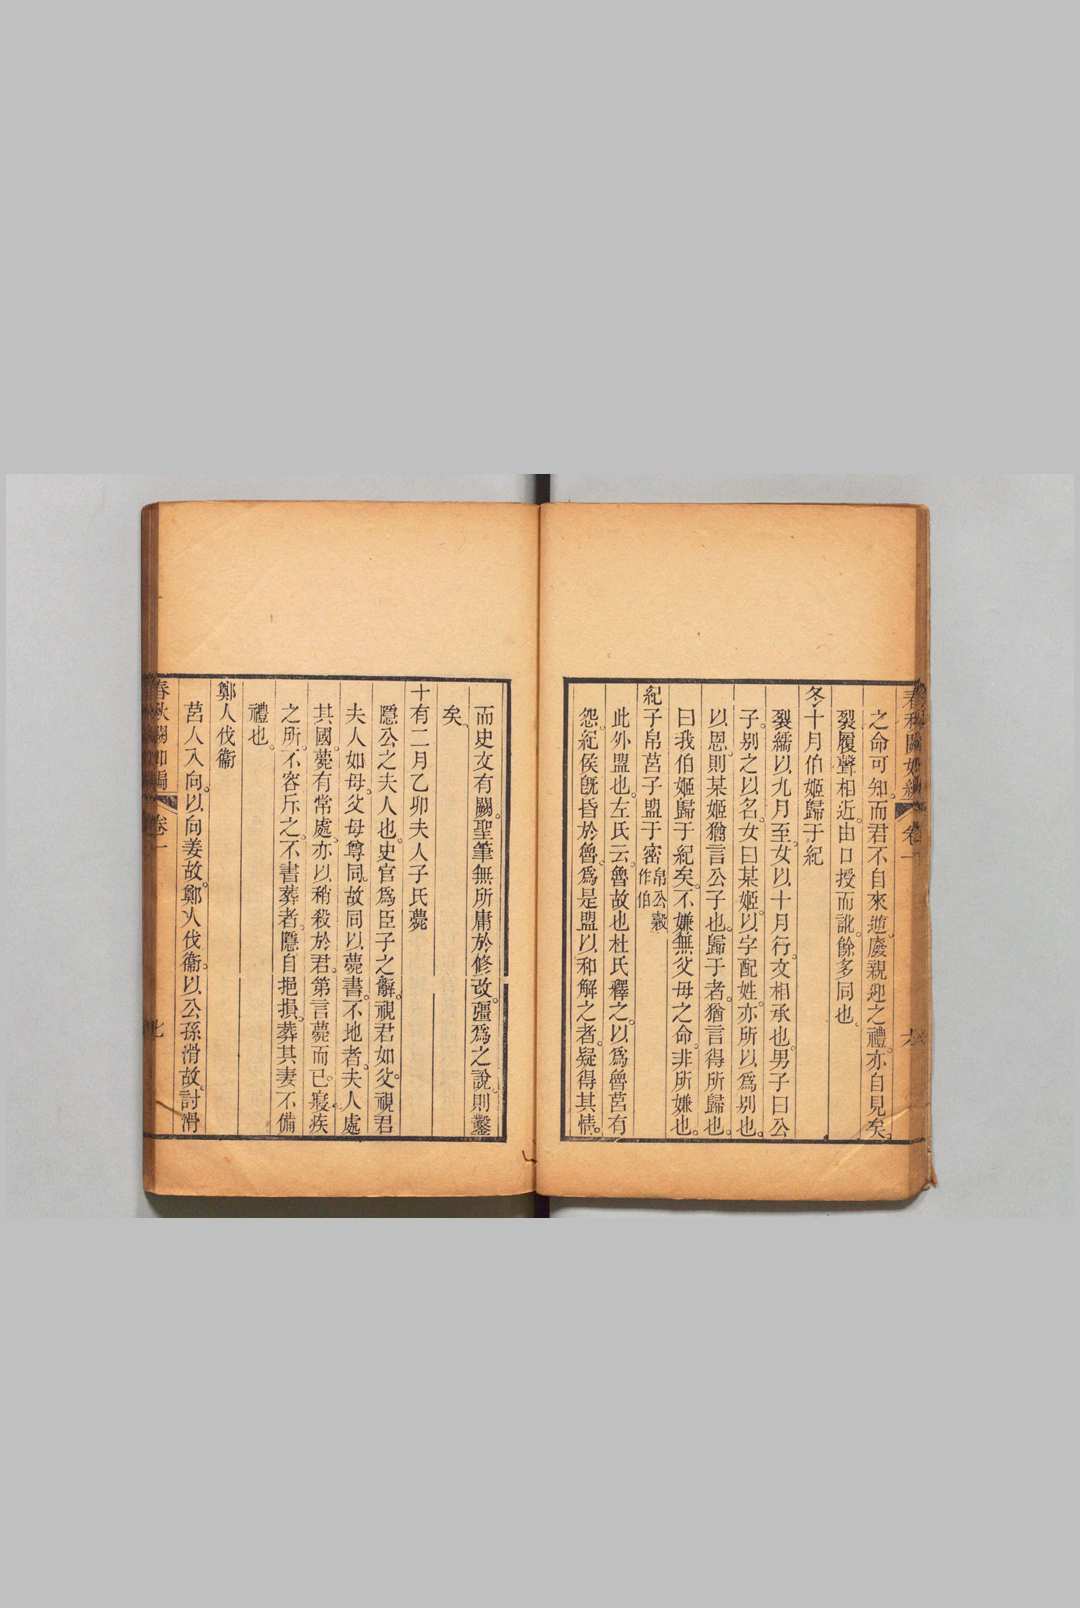 之命可知。而君不自來逆。廢親迎之禮。亦自見矣。
裂履聲相近。由口授而訛。餘多同也。
冬十月伯姬歸于紀
裂繻以九月至。女以十月行。文相承也。男子曰公
子。别之以名。女曰某姬。以字配姓。亦所以爲别也。
以恩。則某姬猶言公子也。歸于者。猶言得所歸也。
曰我伯姬歸于紀矣。不嫌無父母之命。非所嫌也。
紀子帛莒子盟于密 帛公糓作伯
此外盟也。左氏云。魯故也杜氏釋之。以爲魯莒有
怨。紀侯旣昏於魯。爲是盟以和解之者。疑得其情。
而史文有闕。聖筆無所庸於修改。彊爲之說。則鑿
矣。
十有二月乙卯夫人子氏薨
隱公之夫人也。史官爲臣子之辭。視君如父。視君
夫人如母。父母尊同。故同以薨書。不地者。夫人處
其國。薨有常處。亦以稍殺於君。第言薨而已。寢疾
之所。不容斥之。不書葬者。隱自挹損。葬其妻不備
禮也。
鄭人伐衞
莒人入向。以向姜故。鄭人伐衞。以公孫滑故。討滑
春秋闕如編 卷一 七